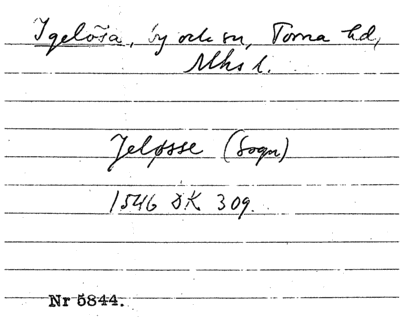 Igelösa, by och sn, Torna hd,
Mhs l.
Jeløsse (Sogn)
1546 DK 309.
Nr 5844.